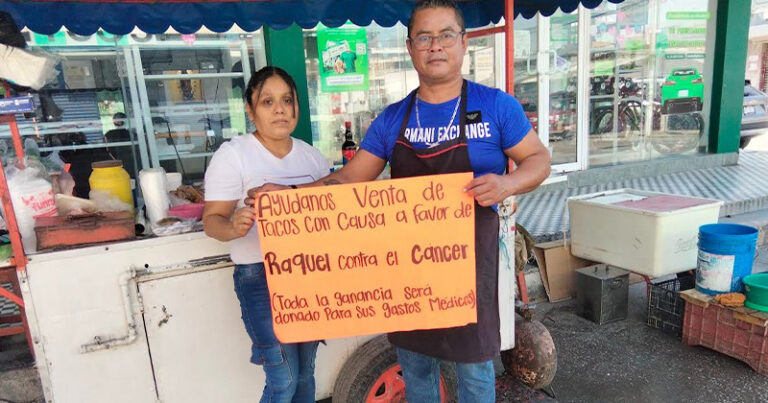 Ayudanos Venta de
Tacos con Causa a favor de
Raquel contra el Cancer
(Toda la ganancia será
donado Para Sus gastos Médicos)
ARMANI EXCHANGE